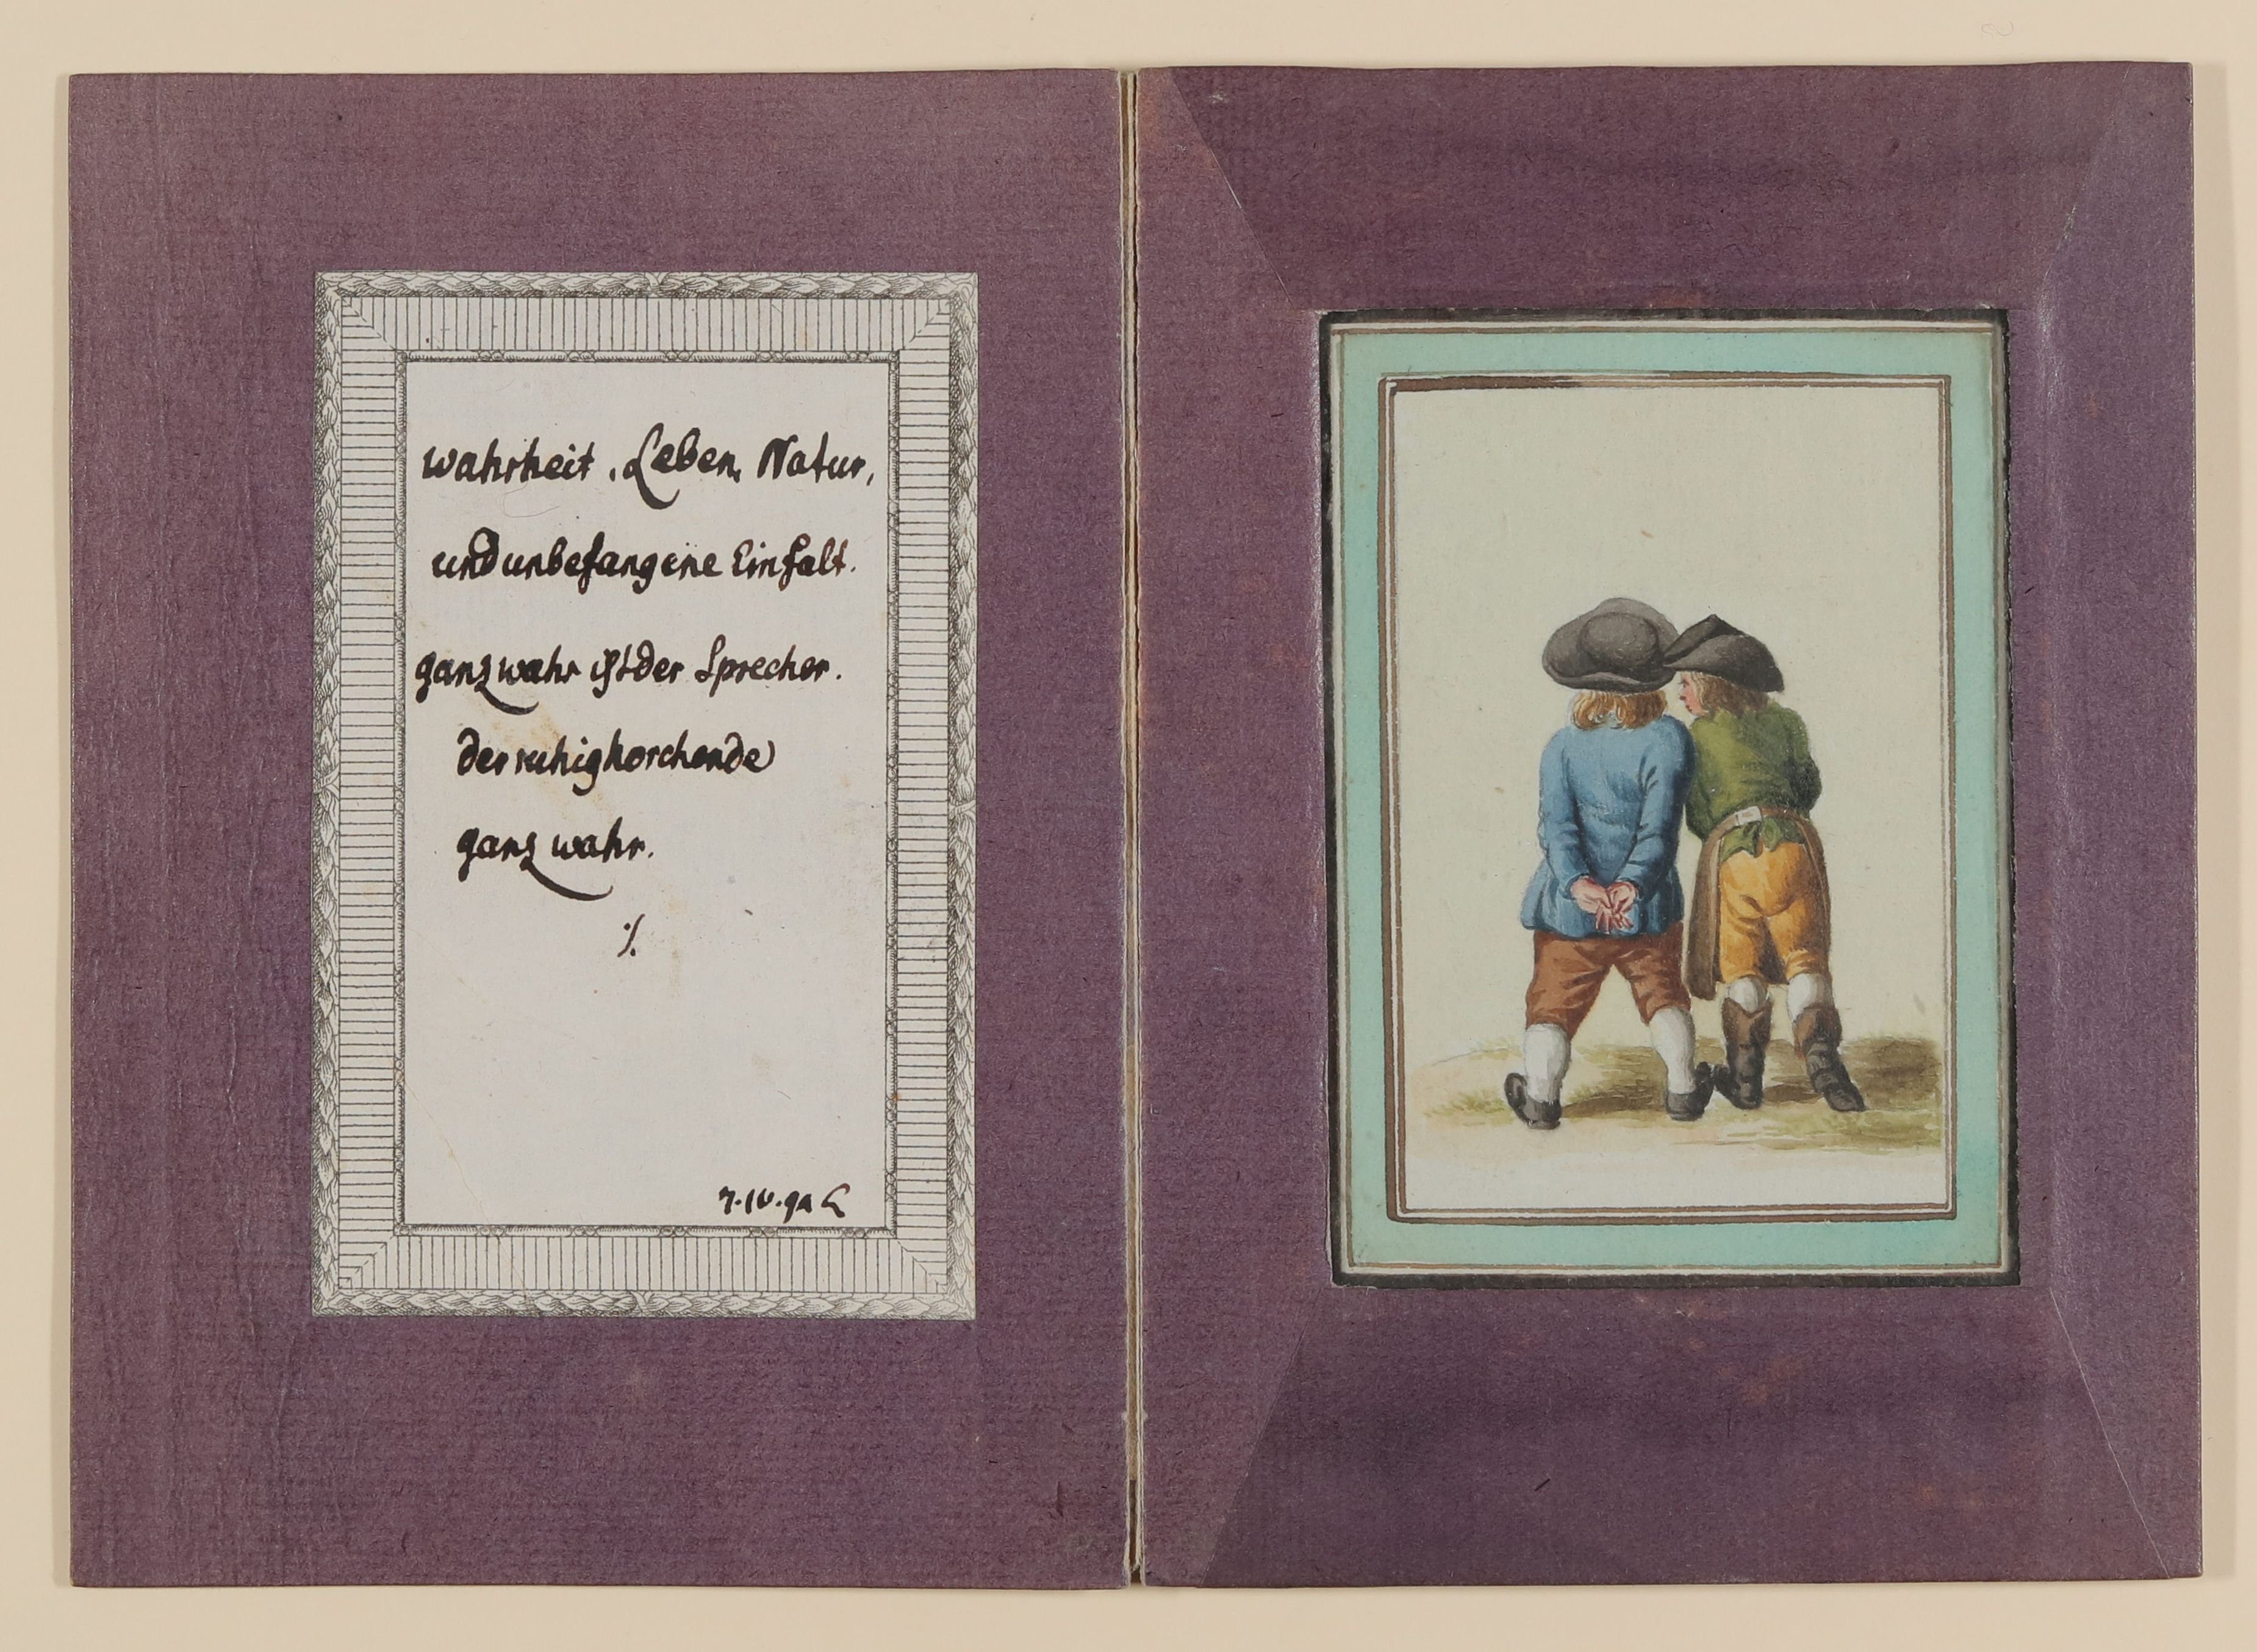 wahrheit. Leben, Natur,
und unbefangene Einfalt.
ganz wahr ist der Sprecher.
der ruhighorchende
ganz wahr.
./.